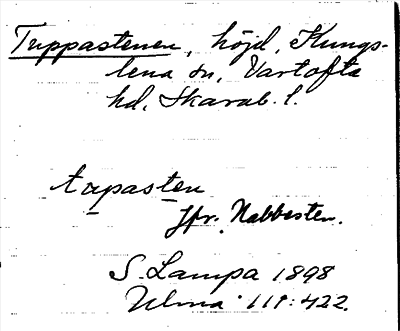 Tuppastenen, höjd, Kungs-
lena sn, Vartofta
hd, Skarab. l.
tupasten
Jfr. Nabbesten.
S. Lampa 1898
Ulma 111:422.